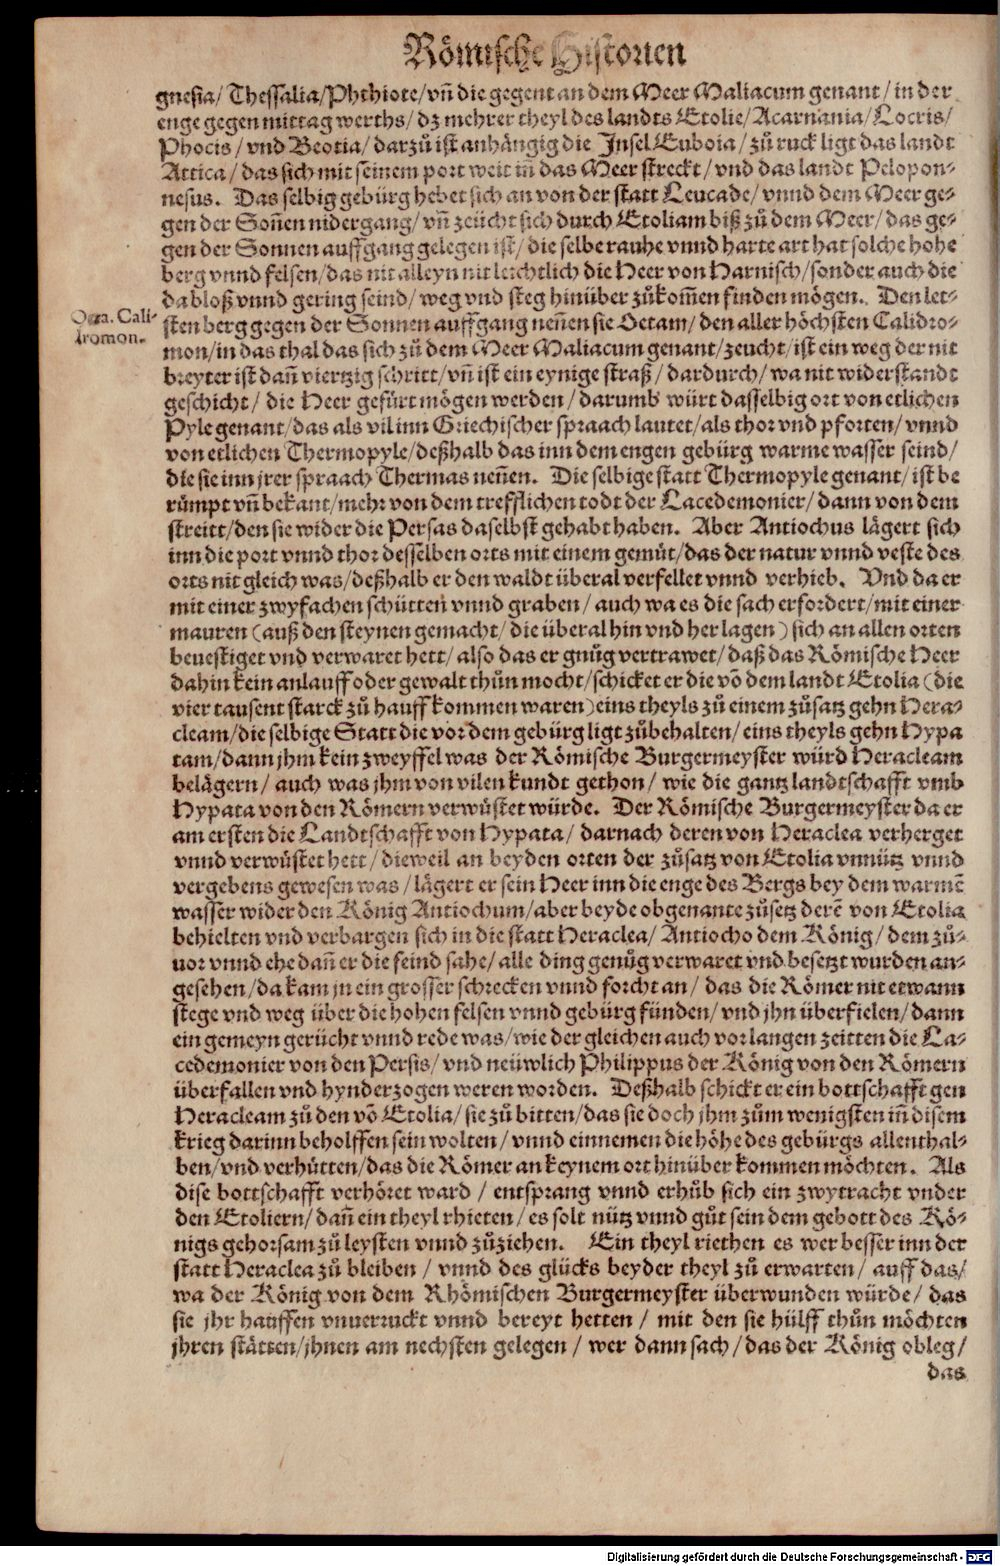 Römische Historien
gnesia/ Thessalia/Phthiote/vñ die gegent an dem Meer Maliacum genant/ in der
enge gegen mittag werths/ dz mehrer theyl des landts Etolie/Acarnania/Locris/
Phocis/ vnd Beotia/ darzů ist anhängig die Insel Euboia/ zů ruck ligt das landt
Attica/ das sich mit seinem port weit iñ das Meer streckt/ vnd das landt Pelopon-
nesus. Das selbig gebürg hebet sich an von der statt Leucade/ vnnd dem Meer ge-
gen der Soñen nidergang/ vñ zeücht sich durch Etoliam biß zů dem Meer/ das ge-
gen der Sonnen auffgang gelegen ist/ die selbe rauhe vnnd harte art hat solche hohe
berg vnnd felsen/das nit alleyn nit leichtlich die Heer von Harnisch/sonder auch die
da bloß vnnd gering seind/ weg vnd steg hinüber zůkom̃en finden mögen. Den let-
Oeta. Cali-
dromon.
sten berg gegen der Sonnen auffgang neñen sie Oetam/ den aller höchsten Calidro-
mon/in das thal das sich zů dem Meer Maliacum genant/zeucht/ist ein weg der nit
breyter ist dañ viertzig schritt/vñ ist ein eynige straß/ dardurch/ wa nit widerstandt
geschicht/ die Heer gefürt mögen werden/ darumb würt dasselbig ort von etlichen
Pyle genant/das als vil inn Griechischer spraach lautet/als thor vnd pforten/ vnnd
von etlichen Thermopyle/deßhalb das inn dem engen gebürg warme wasser seind/
die sie inn jrer spraach Thermas neñen. Die selbige statt Thermopyle genant/ ist be
rümpt vñ bekant/mehr von dem trefflichen todt der Lacedemonier/ dann von dem
streitt/den sie wider die Persas daselbst gehabt haben. Aber Antiochus lägert sich
inn die port vnnd thor desselben orts mit einem gemüt/das der natur vnnd veste des
orts nit gleich was/deßhalb er den waldt überal verfellet vnnd verhieb. Vnd da er
mit einer zwyfachen schütten vnnd graben/ auch wa es die sach erfordert/mit einer
mauren (auß den steynen gemacht/ die überal hin vnd her lagen) sich an allen orten
beuestiget vnd verwaret hett/ also das er gnůg vertrawet/ daß das Römische Heer
dahin kein anlauff oder gewalt thůn mocht/schicket er die võ dem landt Etolia (die
vier tausent starck zů hauff kommen waren) eins theyls zů einem zůsatz gehn Hera-
cleam/die selbige Statt die vor dem gebürg ligt zůbehalten/ eins theyls gehn Hypa
tam/dann jhm kein zweyffel was der Römische Burgermeyster würd Heracleam
belägern/ auch was jhm von vilen kundt gethon/ wie die gantz landtschafft vmb
Hypata von den Römern verwüstet würde. Der Römische Burgermeyster da er
am ersten die Landtschafft von Hypata/ darnach deren von Heraclea verherget
vnnd verwüstet hett/ dieweil an beyden orten der zůsatz von Etolia vnnütz vnnd
vergebens gewesen was/lägert er sein Heer inn die enge des Bergs bey dem warmẽ
wasser wider den König Antiochum/aber beyde obgenante zůsetz derẽ von Etolia
behielten vnd verbargen sich in die statt Heraclea/ Antiocho dem König/ dem zů-
uor vnnd ehe dañ er die feind sahe/ alle ding genůg verwaret vnd besetzt wurden an-
gesehen/da kam jn ein grosser schrecken vnnd forcht an/ das die Römer nit etwann
stege vnd weg über die hohen felsen vnnd gebürg fünden/ vnd jhn überfielen/ dann
ein gemeyn gerücht vnnd rede was/wie der gleichen auch vor langen zeitten die La-
cedemonier von den Persis/ vnd neüwlich Philippus der König von den Römern
überfallen vnd hynderzogen weren worden. Deßhalb schickt er ein bottschafft gen
Heracleam zů den võ Etolia/ sie zů bitten/das sie doch jhm zům wenigsten iñ disem
krieg darinn beholffen sein wolten/ vnnd einnemen die höhe des gebürgs allenthal-
ben/vnd verhütten/das die Römer an keynem ort hinüber kommen möchten. Als
dise bottschafft verhöret ward/ entsprang vnnd erhůb sich ein zwytracht vnder
den Etoliern/ dañ ein theyl rhieten/ es solt nütz vnnd gůt sein dem gebott des Kö-
nigs gehorsam zů leysten vnnd zůziehen. Ein theyl riethen es wer besser inn der
statt Heraclea zů bleiben/ vnnd des glücks beyder theyl zů erwarten/ auff das/
wa der König von dem Rhömischen Burgermeyster überwunden würde/ das
sie jhr hauffen vnuerruckt vnnd bereyt hetten/ mit den sie hülff thůn möchten
jhren stätten/jhnen am nechsten gelegen/ wer dann sach/das der König obleg/
das
Digitalisierung gefördert durch die Deutsche Forschungsgemeinschaft - DFG